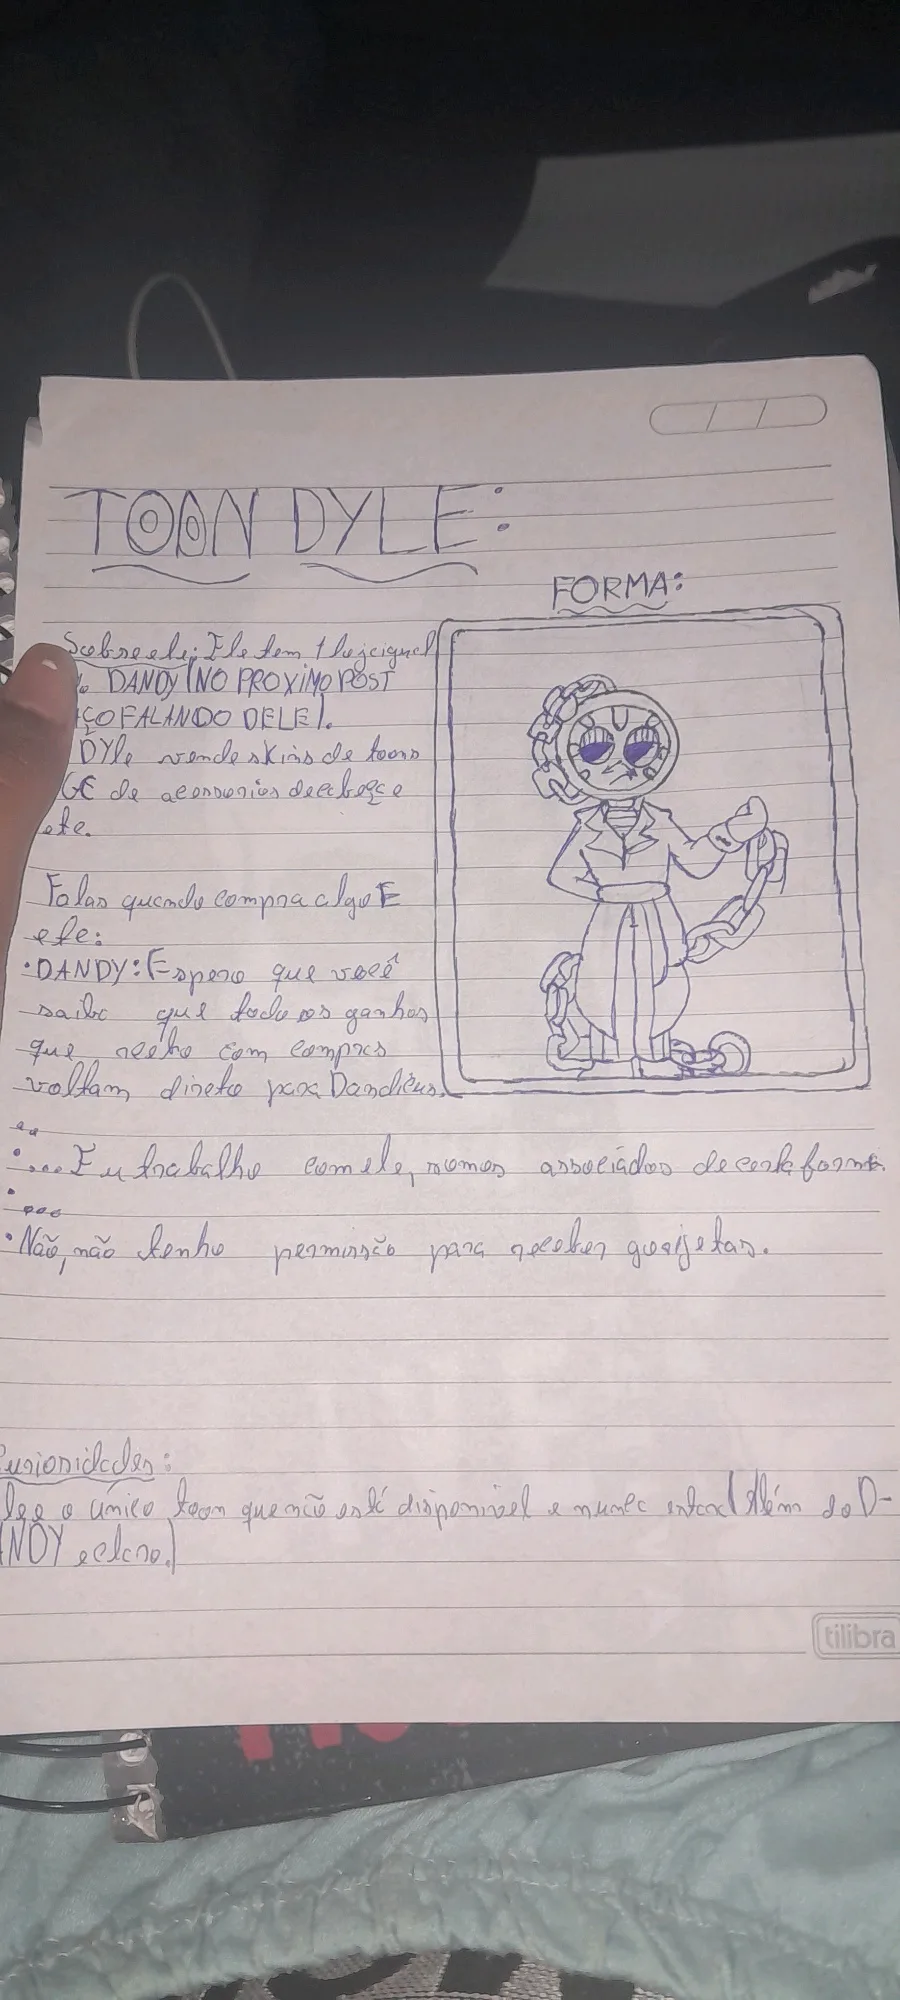 TOON DYLE:
FORMA:
Sobre ele: Ele tem 1 loja igual
DANDY (NO PROXIMO POST
FAÇO FALANDO DELE).
DYle vende skins de toons
E de acessorios de cabeça
etc.
Falas quando compra algo E
ele:
•DANDY: Espero que você
saiba que todo os ganhos
que recebo com compras
voltam direto para Dandicus.
•....Eu trabalho com ele, somos associados de certa forma
•...
•Não, não tenho permissão para receber gorjetas.
Curiosidades:
o único toon que não está disponivel e nunca estará (Além do D-
ANDY e claro.)
tilibra